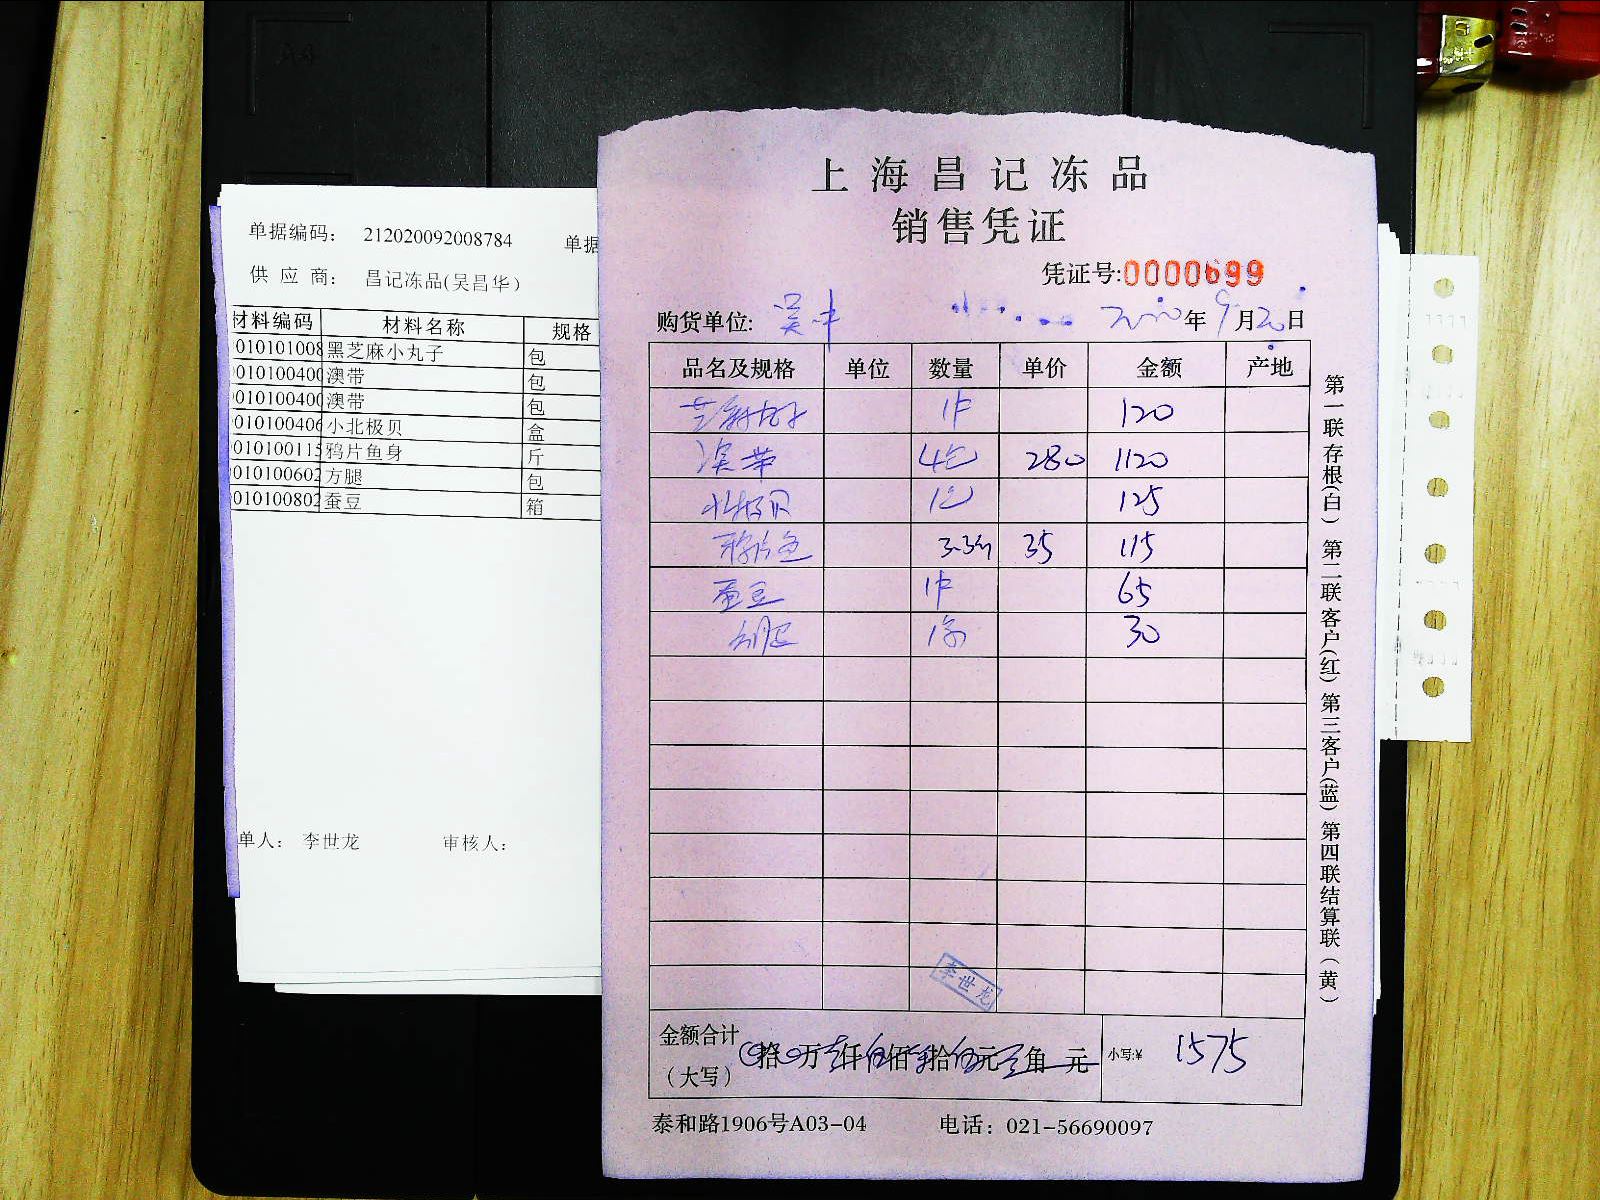 单据编码： 212020092008784 单据
供 应 商： 昌记冻品(吴昌华)
材料编码 材料名称 规格
010101008 黑芝麻小丸子 包
010100400 澳带 包
010100400 澳带 包
010100406 小北极贝 盒
010100115 鸦片鱼身 斤
010100602 方腿 包
010100802 蚕豆 箱
单人： 李世龙 审核人：
上海昌记冻品
销售凭证
凭证号:0000699
购货单位: 吴中 2020年9月20日
品名及规格 单位 数量 单价 金额 产地
芝麻丸子 1件 120
澳带 4包 280 1120
北极贝 1包 125
鸦片鱼 3.3斤 35 115
蚕豆 1件 65
方腿 1条 30
李世龙
金额合计（大写） 拾 万 仟 佰 拾 元 角 元 小写:¥ 1575
泰和路1906号A03-04 电话：021-56690097
第一联存根(白) 第二联客户(红) 第三客户(蓝) 第四联结算联(黄)